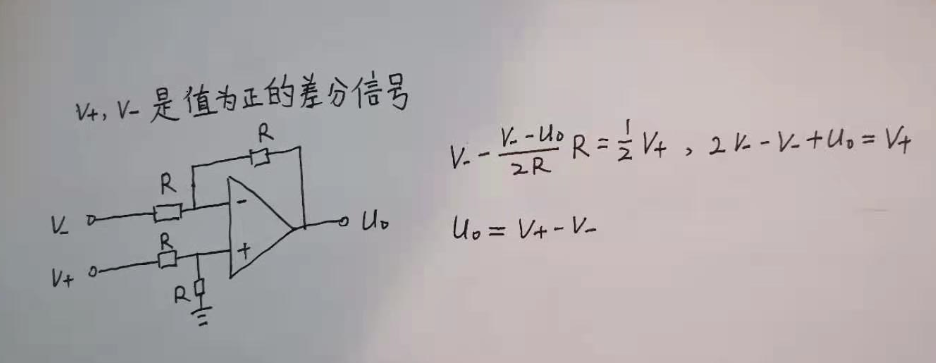 V+, V- 是值为正的差分信号
R
R
V-
U₀
R
V+
R
-
+
V- - (V- - U₀)/(2R) R = 1/2 V+ , 2V- - V- + U₀ = V+
U₀ = V+ - V-